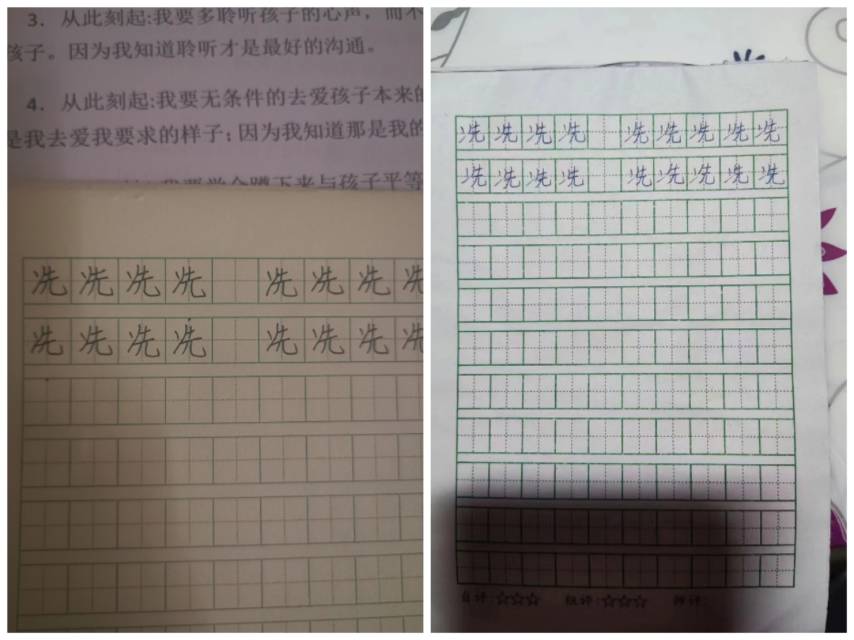 3．从此刻起:我要多聆听孩子的心声，而不
孩子。因为我知道聆听才是最好的沟通。
4．从此刻起:我要无条件的去爱孩子本来的
是我去爱我要求的样子;因为我知道那是我的
我要学会蹲下来与孩子平等
冼冼冼冼 冼冼冼冼
冼冼冼冼 冼冼冼冼
冼冼冼冼 冼冼冼冼冼
冼冼冼冼 冼冼冼冼冼
自评:☆☆☆ 组评:☆☆☆ 师评: